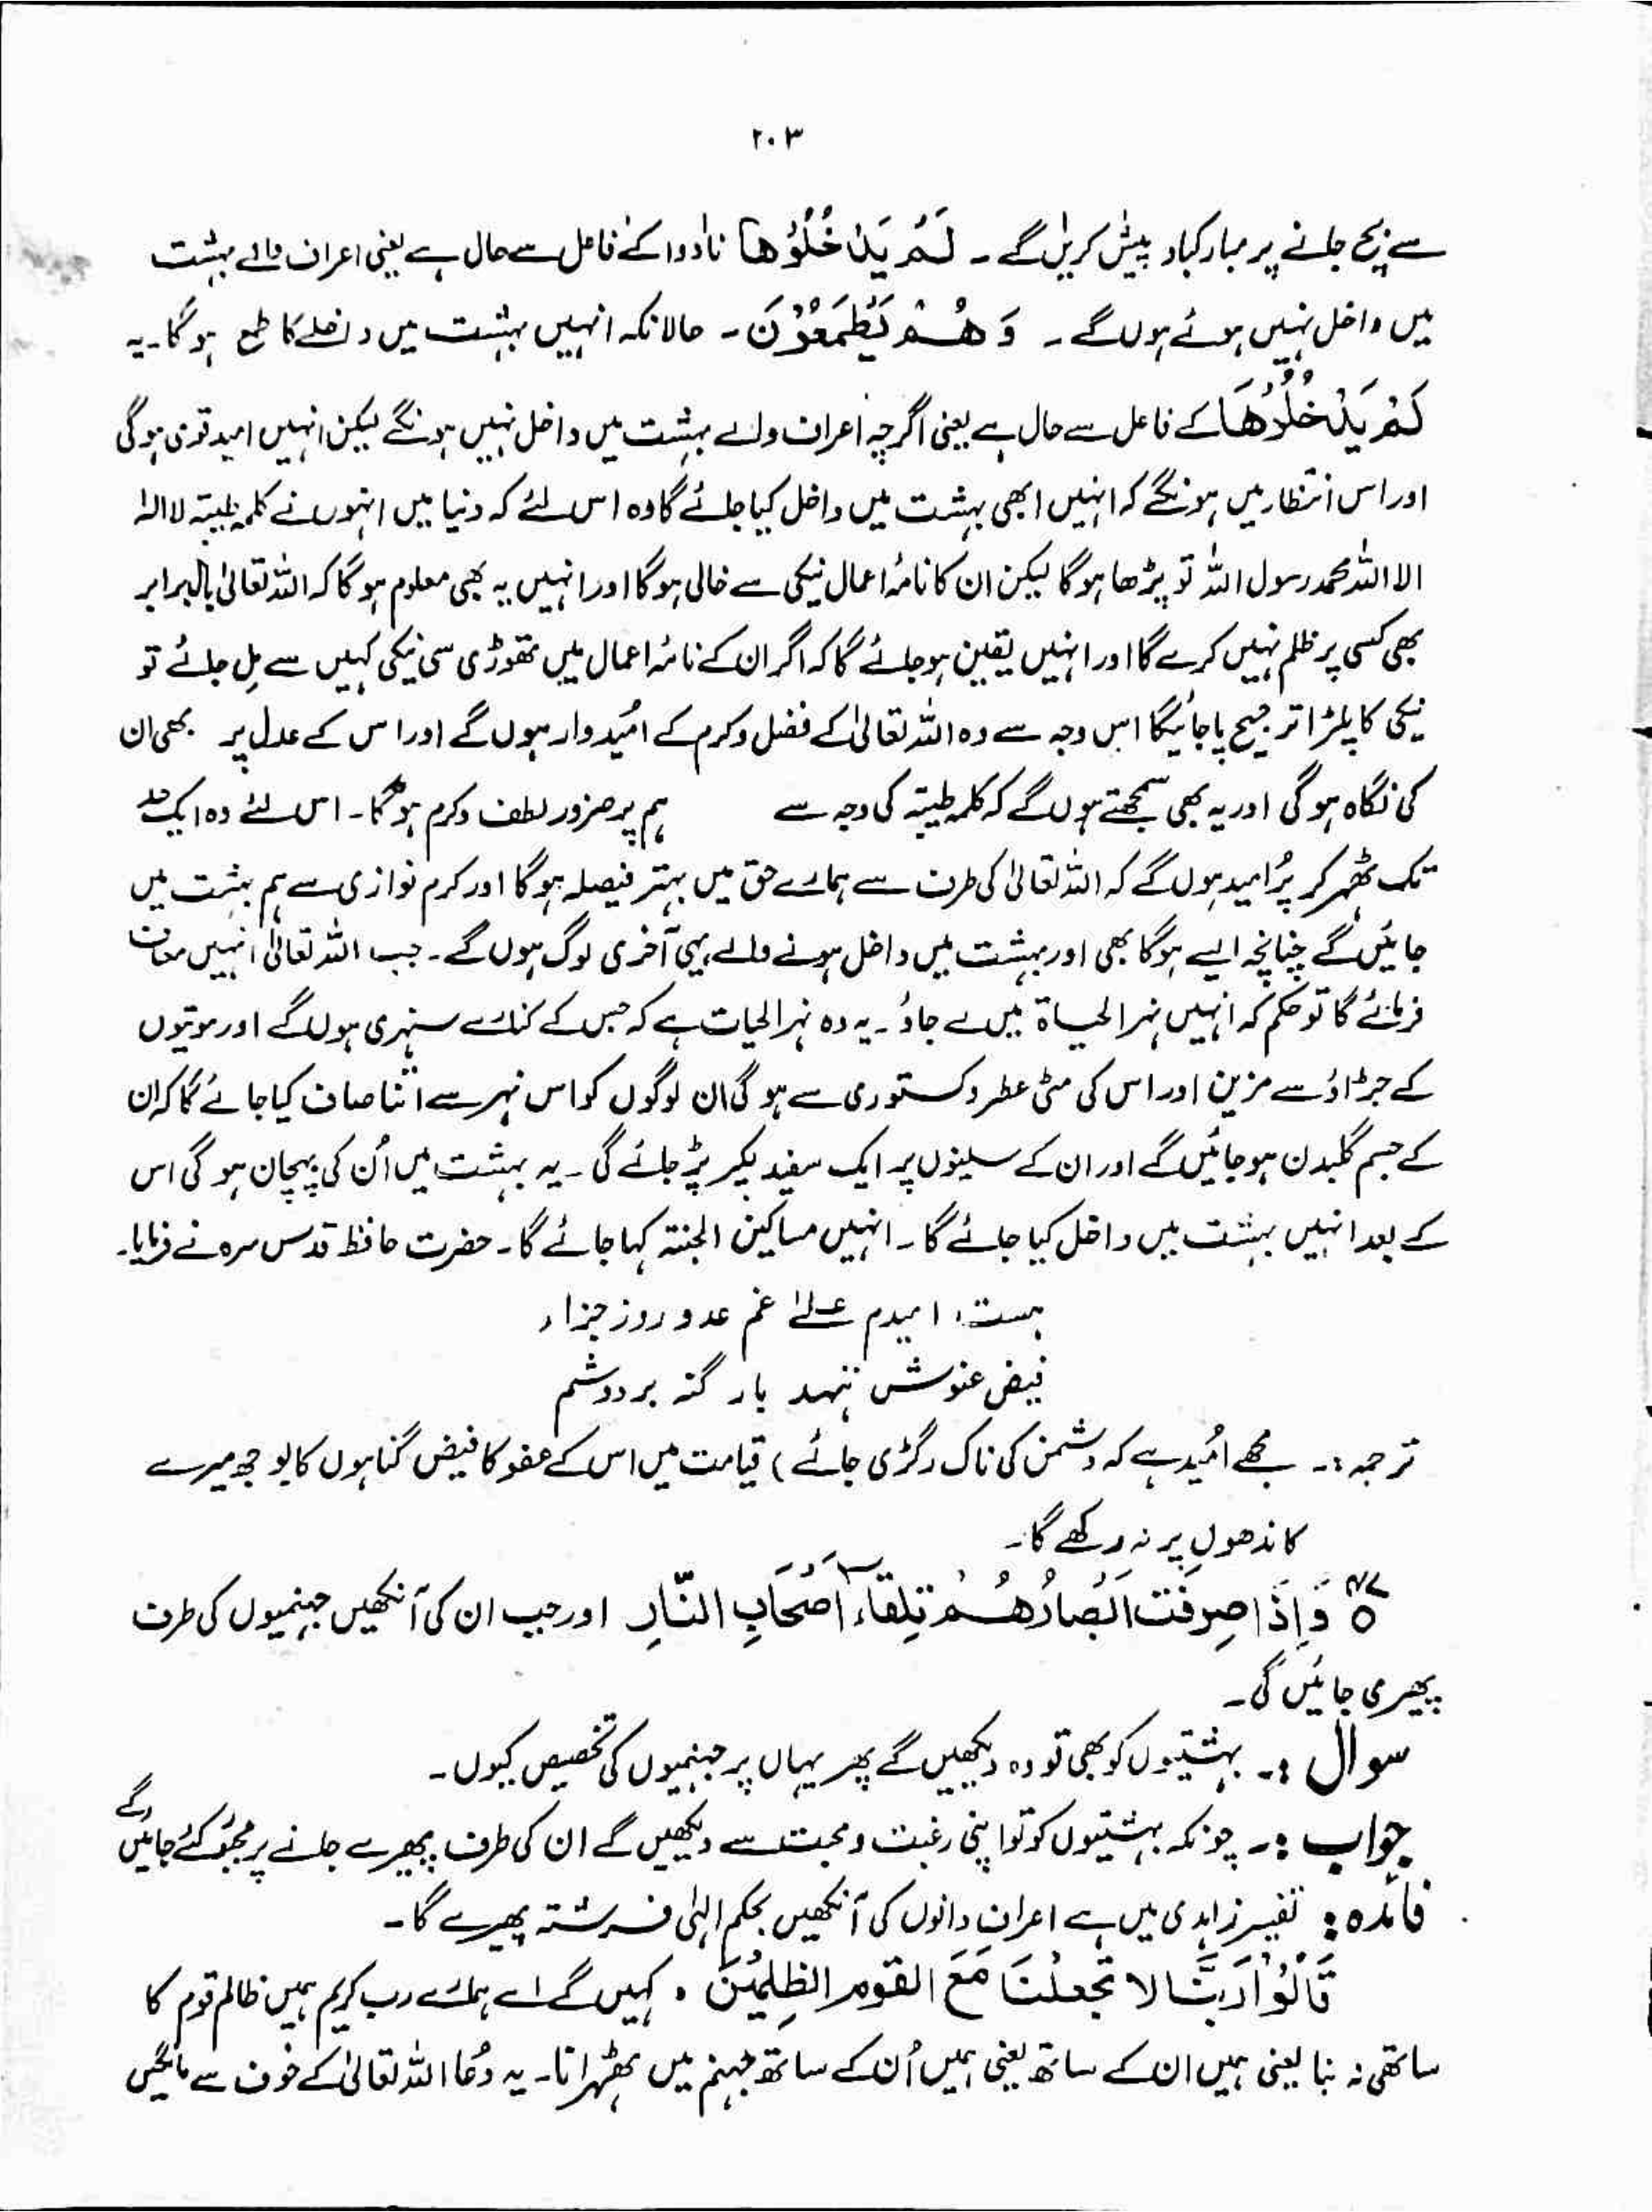 ۲۰۳
سے بچ جانے پر مبارکباد پیش کریں گے ۔ لَمْ يَدْخُلُوْهَا نادوا کے فاعل سے حال ہے یعنی اعراف والے بہشت
میں داخل نہیں ہوئے ہوں گے ۔ وَهُمْ يَطْمَعُوْنَ ۔ حالانکہ انہیں بہشت میں داخلے کا طمع ہو گا ۔ یہ
لَمْ يَدْخُلُوْهَا کے فاعل سے حال ہے یعنی اگرچہ اعراف والے بہشت میں داخل نہیں ہونگے لیکن انہیں امید قوی ہو گی
اور اس انتظار میں ہونگے کہ انہیں ابھی بہشت میں داخل کیا جائے گا وہ اس لئے کہ دنیا میں انہوں نے کلمہ طیبہ لا الہ
الا اللہ محمد رسول اللہ تو پڑھا ہو گا لیکن ان کا نامۂ اعمال نیکی سے خالی ہو گا اور انہیں یہ بھی معلوم ہو گا کہ اللہ تعالیٰ بال برابر
بھی کسی پر ظلم نہیں کرے گا اور انہیں یقین ہو جائے گا کہ اگر ان کے نامۂ اعمال میں تھوڑی سی نیکی کہیں سے مل جائے تو
نیکی کا پلڑا ترجیح پا جائیگا اس وجہ سے وہ اللہ تعالیٰ کے فضل و کرم کے اُمیدوار ہوں گے اور اس کے عدل پر بھی ان
کی نگاہ ہو گی اور یہ بھی سمجھتے ہوں گے کہ کلمہ طیبہ کی وجہ سے ہم پر ضرور لطف و کرم ہو گا ۔ اس لئے وہ ایک
تک ٹھہر کر پُر امید ہوں گے کہ اللہ تعالیٰ کی طرف سے ہمارے حق میں بہتر فیصلہ ہو گا اور کرم نوازی سے ہم بہشت میں
جائیں گے چنانچہ ایسے ہو گا بھی اور بہشت میں داخل ہونے والے یہی آخری لوگ ہوں گے ۔ جب اللہ تعالیٰ انہیں معاف
فرمائے گا تو حکم کہ انہیں نہر الحیاۃ میں لے جاؤ ۔ یہ وہ نہر الحیات ہے کہ جس کے کنارے سنہری ہوں گے اور موتیوں
کے جڑاؤ سے مزین اور اس کی مٹی عطر و کستوری سے ہو گی ان لوگوں کو اس نہر سے اتنا صاف کیا جائے گا کہ ان
کے جسم گلبدن ہو جائیں گے اور ان کے سینوں پر ایک سفید لکیر پڑ جائے گی ۔ یہ بہشت میں اُن کی پہچان ہو گی اس
کے بعد انہیں بہشت میں داخل کیا جائے گا ۔ انہیں مساکین الجنتہ کہا جائے گا ۔ حضرت حافظ قدس سرہ نے فرمایا ۔
ہست امیدم علیٰ غم عدو روز جزا
فیض عفوش ننہد بار گنہ بر دوشم
ترجمہ :۔ مجھے اُمید ہے کہ دشمن کی ناک رگڑی جائے ) قیامت میں اس کے عفو کا فیض گناہوں کا بوجھ میرے
کاندھوں پر نہ رکھے گا ۔
وَإِذَا صُرِفَتْ اَبْصَارُهُمْ تِلْقَآءَ اَصْحَابِ النَّارِ اور جب ان کی آنکھیں جہنمیوں کی طرف
پھیری جائیں گی ۔
سوال :۔ بہشتیوں کو بھی تو وہ دیکھیں گے پھر یہاں پر جہنمیوں کی تخصیص کیوں ۔
جواب :۔ چونکہ بہشتیوں کو تو اپنی رغبت و محبت سے دیکھیں گے ان کی طرف پھیرے جانے پر مجبور کئے جائیں گے
فائدہ : تفسیر زاہدی میں ہے اعراف والوں کی آنکھیں بحکم الٰہی فرشتہ پھیرے گا ۔
قَالُوْا رَبَّنَا لا تَجْعَلْنَا مَعَ القوم الظلِمِيْنَ ۔ کہیں گے اے ہمارے رب کریم ہمیں ظالم قوم کا
ساتھی نہ بنا یعنی ہمیں ان کے ساتھ یعنی ہمیں اُن کے ساتھ جہنم میں ٹھہرانا ۔ یہ دُعا اللہ تعالیٰ کے خوف سے مانگیں